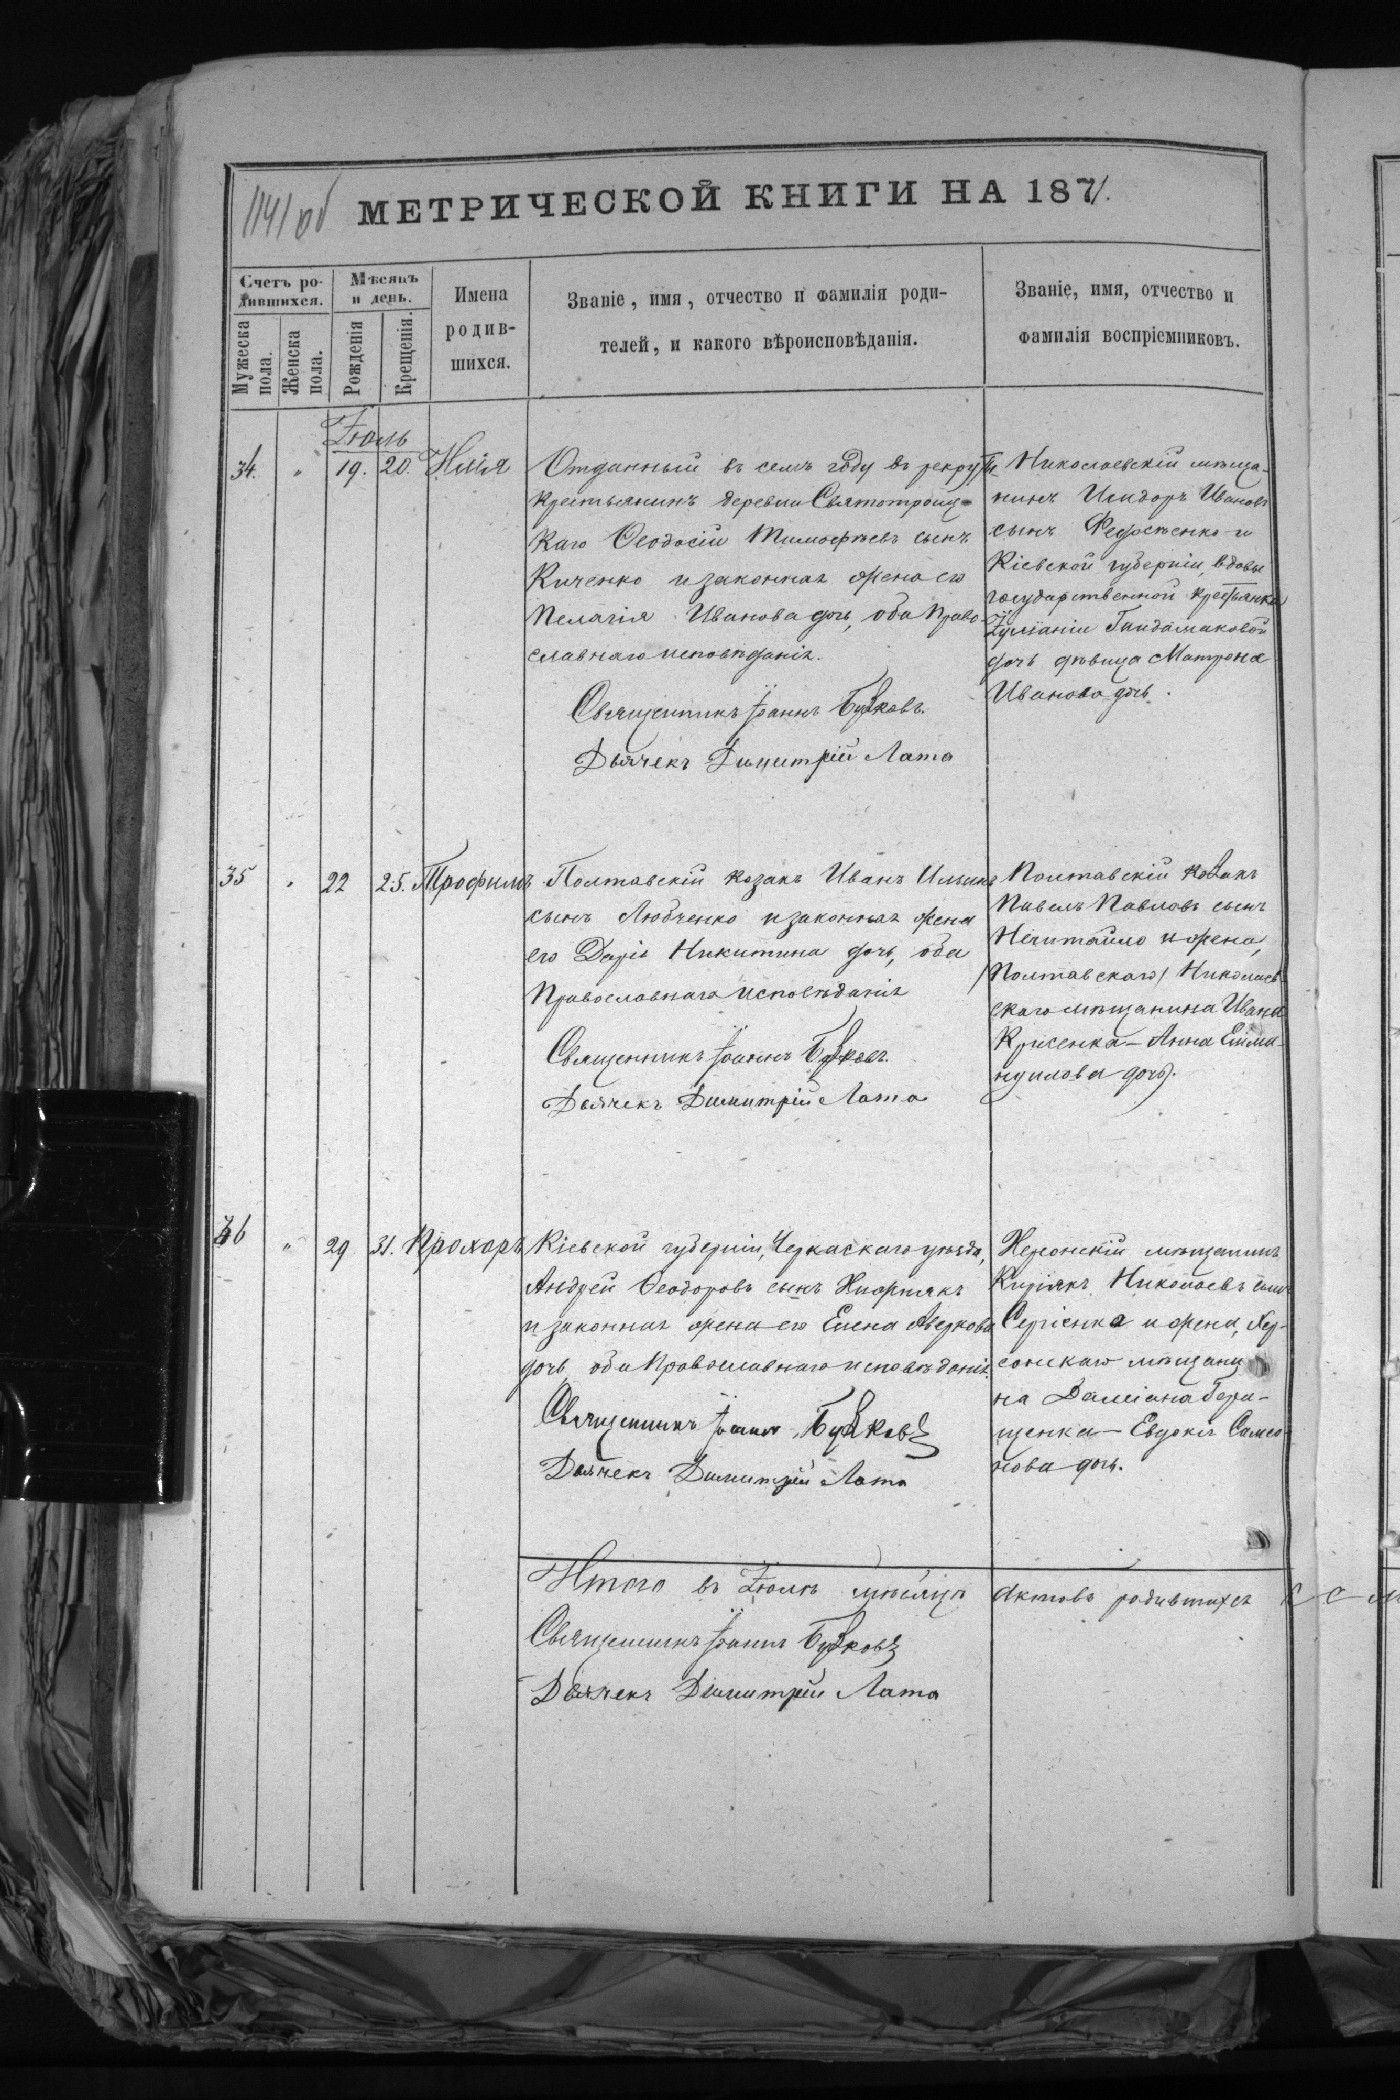 1141 об
МЕТРИЧЕСКОЙ КНИГИ НА 1871.
Счетъ ро-
дившихся.
Мужеска
пола.
Женска
пола.
Мѣсяцъ
и день.
Рожденія
Крещенія.
Имена
родив-
шихся.
Званіе, имя, отчество и фамилія роди-
телей, и какого вѣроисповѣданія.
Званіе, имя, отчество и
фамилія воспріемниковъ.
Іюль
34. " 19. 20. Илія
Отданный въ семъ году въ рекруты
крестьянинъ деревни Святотроиц-
каго Ѳеодосій Тимофѣевъ сынъ
Киченко и законная жена его
Пелагія Иванова дочь, оба Право-
славнаго исповѣданія.
Священникъ Іоаннъ Бужковъ.
Дьячекъ Димитрій Лата
Николаевскій мѣща-
нинъ Исидоръ Ивановъ
сынъ Федосѣенко и
Кіевской губерніи, вдовы
государственной крестьянки
Іуліаніи Гайдамаковой
дочь дѣвица Матрона
Иванова дочь.
35 " 22 25. Трофимъ
Полтавскій козакъ Иванъ Ильинъ
сынъ Любченко и законная жена
его Дарія Никитина дочь, оба
Православнаго исповѣданія
Священникъ Іоаннъ Бужковъ.
Дьячекъ Димитрій Лата
Полтавскій козакъ
Павелъ Павловъ сынъ
Нечитайло и жена,
(Полтавскаго) Николаев
скаго мѣщанина Ивана
Крисенка – Анна
дочь.
36 " 29 31. Прохоръ
Кіевской губерніи, Черкаскаго уѣзда,
Андрей Ѳеодоровъ сынъ
и законная жена его Елена Аверкова
дочь, оба Православнаго исповѣданія.
Священникъ Іоаннъ Бужковъ
Дьячекъ Димитрій Лата
Херсонскій мѣщанинъ
Киріякъ Николаевъ сынъ
Сергіенко и жена, Хер-
сонскаго мѣщани
на Даміана Гера-
щенка – Евдокія Самсо-
нова дочь.
Итого въ Іюлѣ мѣсяцѣ актовъ родившихся
Священникъ Іоаннъ Бужковъ
Дьячекъ Димитрій Лата